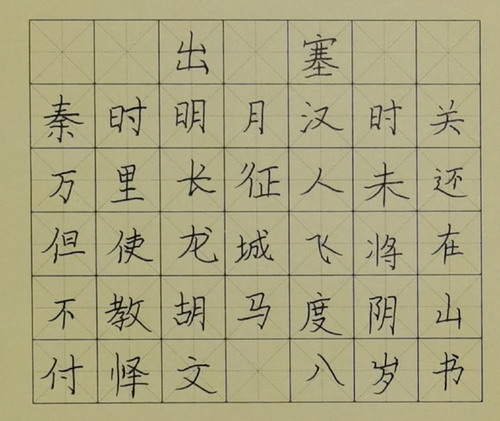 出 塞
秦时明月汉时关
万里长征人未还
但使龙城飞将在
不教胡马度阴山
付怿文 八岁书